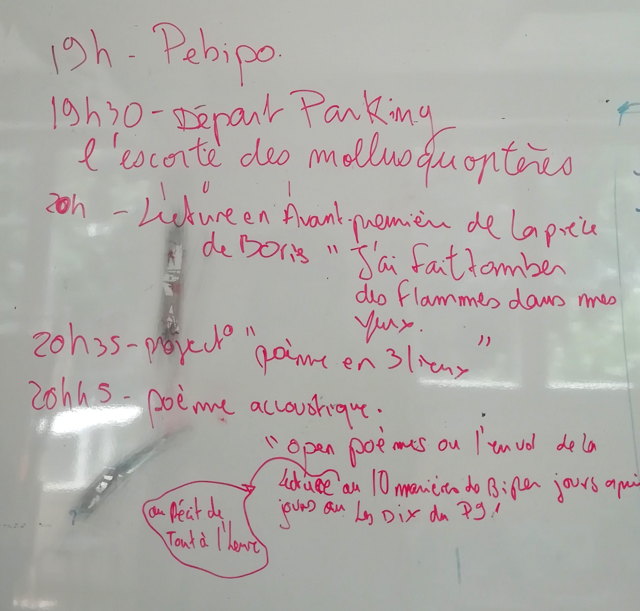 19h - Pebipo.
19h30 - Départ Parking
l'escorte des mollusquoptères
20h - Lecture en Avant-première de la pièce
de Boris "J'ai fait tomber
des flammes dans mes
yeux.
20h35 - project° "poème en 3 lieux"
20h45 - poème accoustique.
"open poèmes ou l'envol de la
Lecture ou 10 manières de Bifler jours après
jours ou Les Dix du P9"
ou Récit de
Tout à l'heure